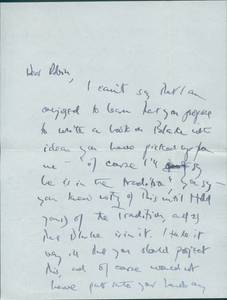 Dear Robin,
I can't say that I am
overjoyed to learn that you propose
to write a book on Blake with
ideas you have picked up from
me — "of course I'll say
he is in the tradition", you say -
you knew nothing of this until I told
you of the Tradition and
that Blake is in it. I take it
very ill that you should project
this, and of course would not
have put into your hands any